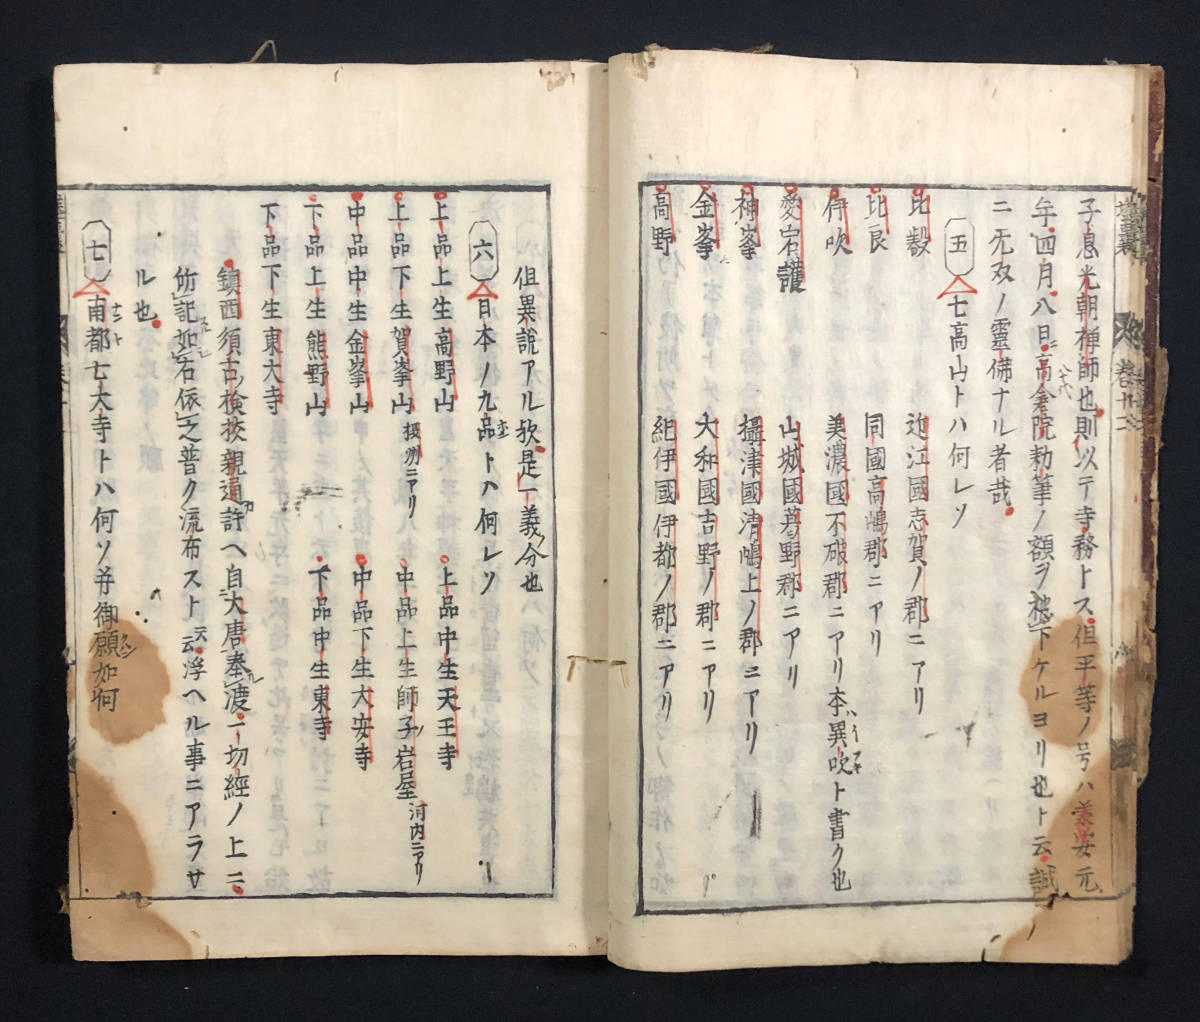 子息光朝禅師也則以テ寺務トス但平等ノ号ハ養安元
年四月八日高倉院勅筆ノ額ヲ被下ケルヨリ也ト云誠
ニ无双ノ靈佛ナル者哉
五 七高山トハ何レソ
比叡 近江國志賀ノ郡ニアリ
比良 同國高嶋郡ニアリ
伊吹 美濃國不破郡ニアリ本異吹ト書ク也
愛宕護 山城國葛野郡ニアリ
神峯 攝津國清嶋上ノ郡ニアリ
金峯 大和國吉野ノ郡ニアリ
高野 紀伊國伊都ノ郡ニアリ
但異說アル歟是一義分也
六 日本ノ九品トハ何レソ
上品上生高野山 上品中生天王寺
上品下生賀峯山 摂州ニアリ 中品上生師子岩屋 河内ニアリ
中品中生金峯山 中品下生大安寺
下品上生熊野山 下品中生東寺
下品下生東大寺
鎮西須古検挍親通許ヘ自大唐奉渡一切經ノ上ニ
所記如右依之普ク流布スト云浮ヘル事ニアラサ
ル也
七 南都七大寺トハ何ソ并御願如何